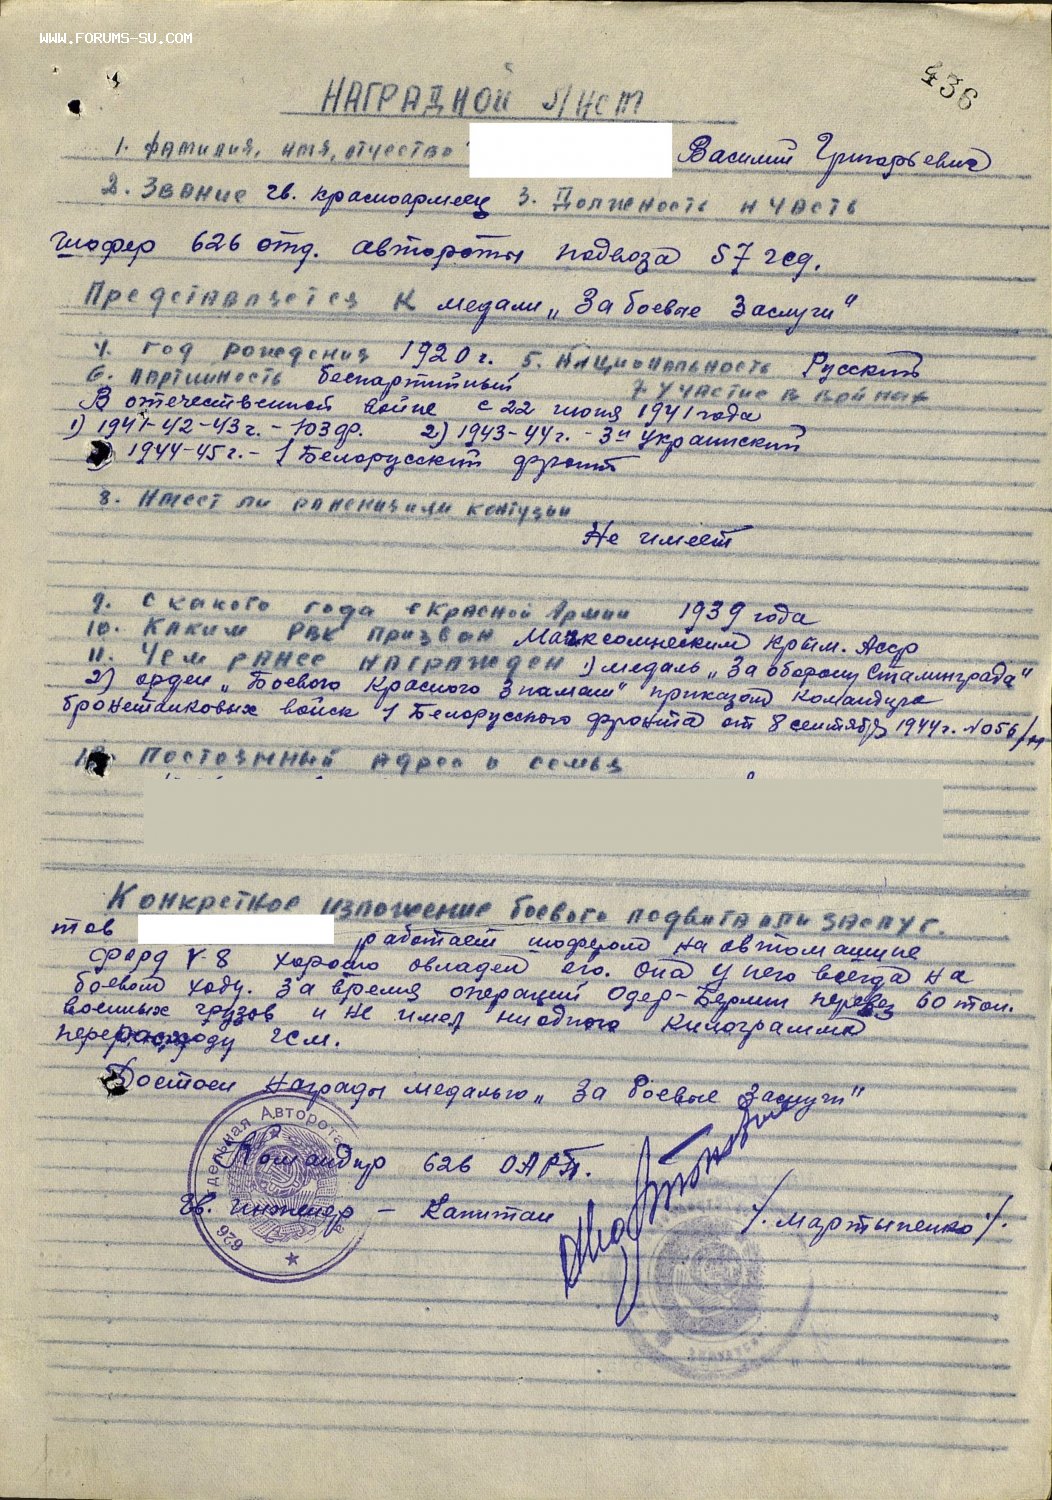 WWW.FORUMS-SU.COM
436
НАГРАДНОЙ ЛИСТ
1. Фамилия, имя, отчество Василий Григорьевич
2. Звание гв. красноармеец 3. Должность и часть
шофер 626 отд. автороты подвоза 57 гсд.
Представляется к медали „За боевые заслуги"
4. год рождения 1920 г. 5. Национальность Русский
6. партийность беспартийный 7 Участие в войнах
В отечественной войне с 22 июня 1941 года
1) 1941-42-43 г. - ЮЗФр. 2) 1943-44 г. - 3й Украинский
1944-45 г. - 1 Белорусский фронт
8. Имеет ли ранения или контузии
Не имеет
9. С какого года в Красной Армии 1939 года
10. Каким РВК призван Крым. Асср
11. Чем ранее награжден 1) медаль „За оборону Сталинграда"
2) орден „Боевого Красного Знамени" приказом командира
бронетанковых войск 1 Белорусского фронта от 8 сентября 1944 г. №056/н
12. Постоянный адрес и семья
Конкретное изложение боевого подвига или заслуг.
тов работает шофером на автомашине
форд V-8 хорошо овладел его. Она у него всегда на
боевом ходу. За время операций Одер-Берлин перевез 60 тон.
военных грузов и не имел ниодного килограмма
перерасходу ГСМ.
Достоен награды медалью „За боевые заслуги"
дельная Авторота
626
Командир 626 ОАРП.
Гв. инженер - Капитан /. Мартыненко ./.